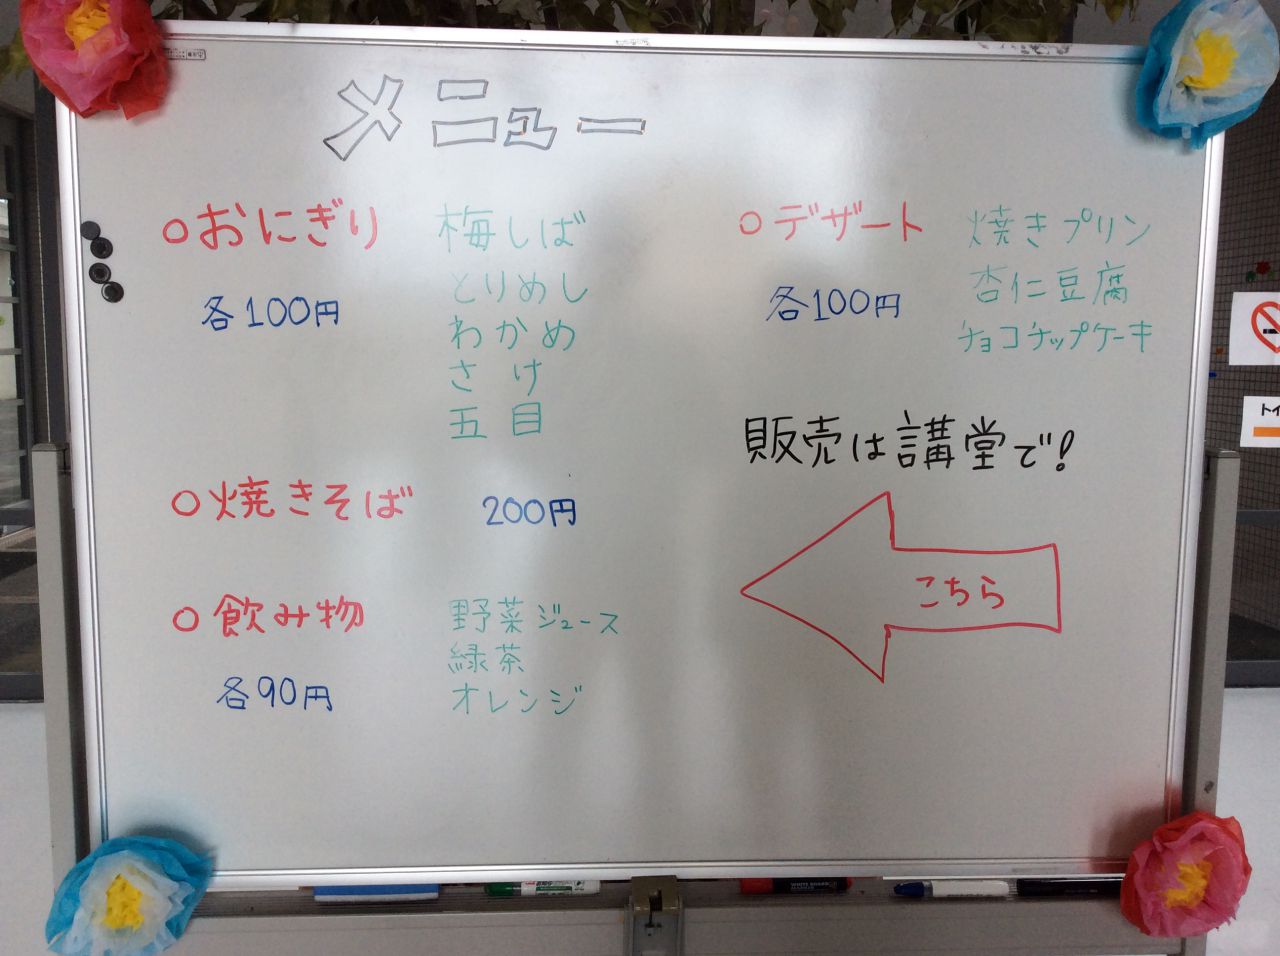 メニュー
○おにぎり
各100円
梅しば
とりめし
わかめ
さけ
五目
○焼きそば 200円
○飲み物
各90円
野菜ジュース
緑茶
オレンジ
○デザート
各100円
焼きプリン
杏仁豆腐
チョコチップケーキ
販売は講堂で!
こちら
トイ
WHITE BOARD MARKER